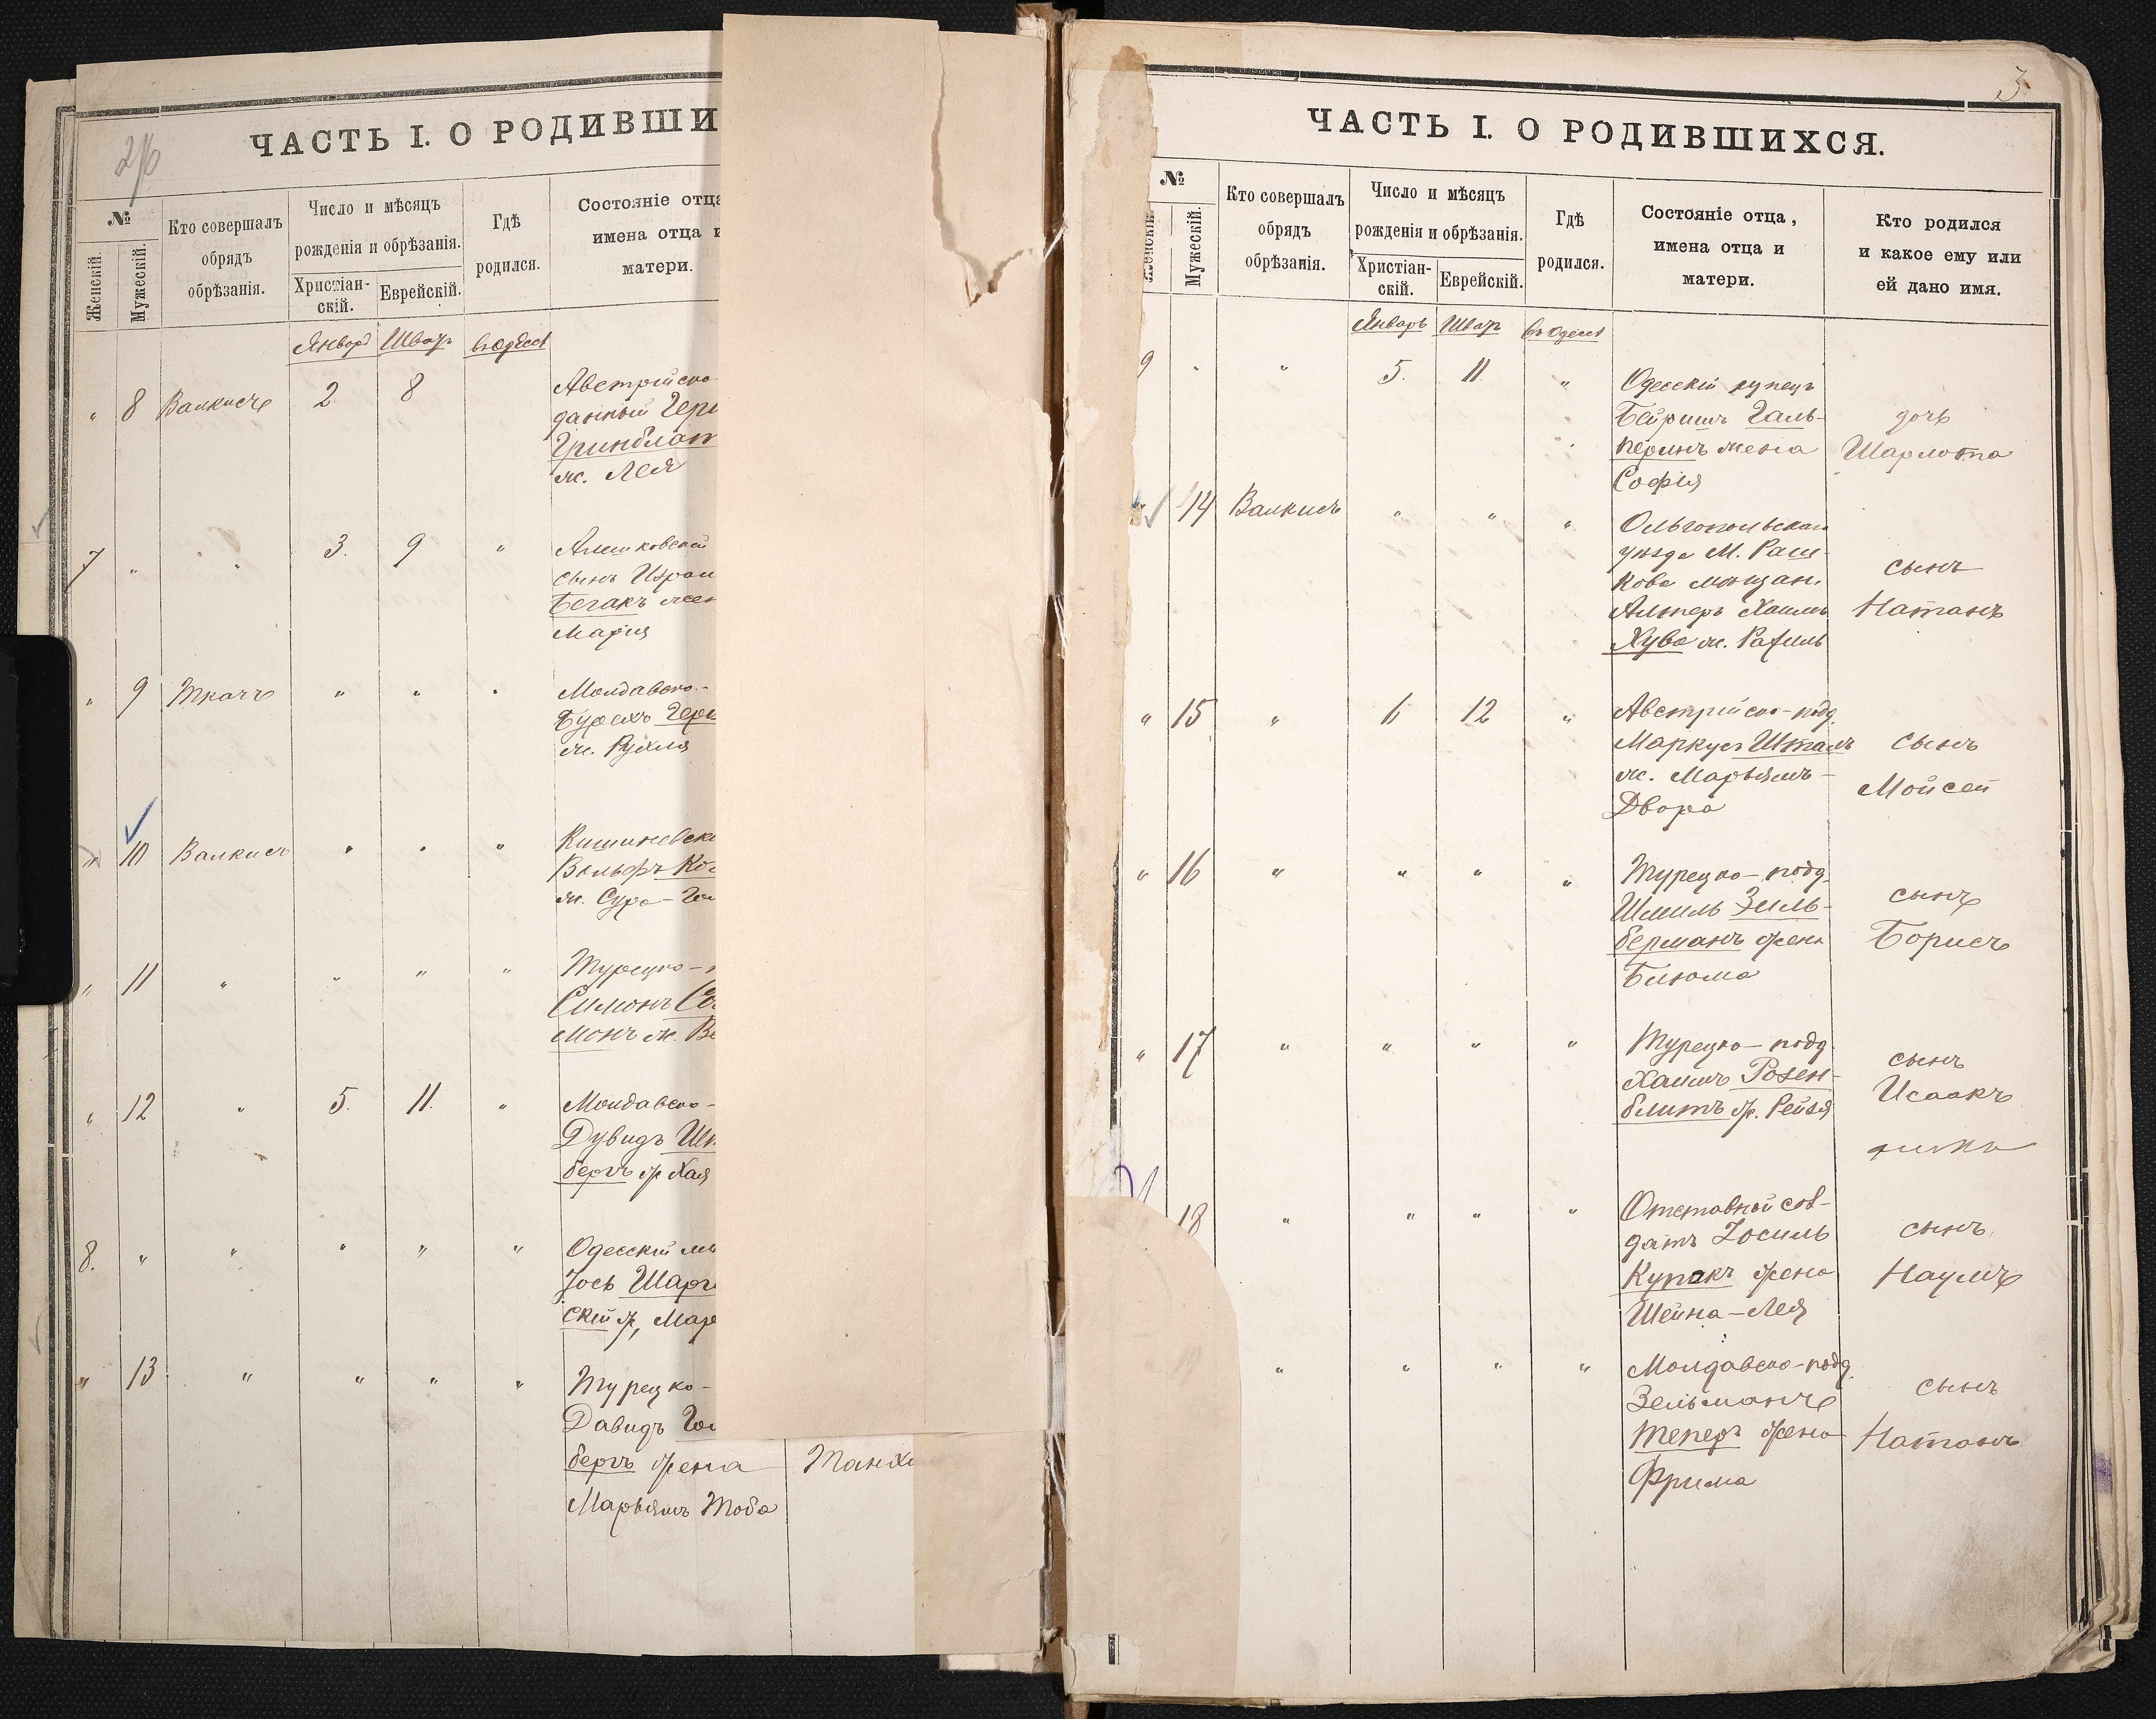 ЧАСТЬ I. О РОДИВШИ
№
Женскій.
Мужескій.
Кто совершалъ
обрядъ
обрѣзанія.
Число и мѣсяцъ
рожденія и обрѣзанія.
Христіан-
скій.
Еврейскій.
Гдѣ
родился.
Состояніе отца
имена отца и
матери.
Январь Шватъ въ Одессѣ
" 8 Валкисъ 2 8 Австрійско-
данный Герш
Гринблат
ж. Лея
7 " " 3. 9 " Алешковскій
сынъ Израи
Бегакъ жен
Марія
" 9 Ткачъ " " " Молдавско-
Бурехъ Герш
ж. Рухля
" 10 Валкисъ " " " Кишиневск
Вольфъ Ко
ж. Сура-
" 11 " " " " Турецко-
Симонъ Со
монъ ж. Ве
" 12 " 5. 11. " Молдавско-
Дувидъ Ш
бергъ ж Хая
8. " " " " " Одесскій мѣ
Іось Шарг
скій ж, Мар
" 13 " " " " Турецко-
Давидъ Гол
бергъ жена Танх
Марьямъ Тоба
3
ЧАСТЬ I. О РОДИВШИХСЯ.
№
Женскій
Мужескій.
Кто совершалъ
обрядъ
обрѣзанія.
Число и мѣсяцъ
рожденія и обрѣзанія.
Христіан-
скій.
Еврейскій.
Гдѣ
родился.
Состояніе отца,
имена отца и
матери.
Кто родился
и какое ему или
ей дано имя.
Январь Шватъ въ Одессѣ
9 " " 5. 11. " Одесскій купецъ
Бейришъ Галь- дочь
перинъ жена Шарлота
Софія
14 Валкисъ " " " Ольгопольскаго
уѣзда М. Раш-
кова мѣщан. сынъ
Алтеръ Хаимъ Натанъ
Хува ж. Рахиль
" 15 " 6 12 " Австрійско-подд.
Маркусъ Шталь сынъ
ж. Марьямъ- Мойсей
Двора
" 16 " " " " Турецко-подд.
Шмиль Зиль- сынъ
берманъ жена Борисъ
Блюма
" 17 " " " " Турецко-подд.
Хаимъ Розен- сынъ
блитъ ж. Рейзя Исаакъ
18 " " " " Отставной сол-
датъ Іосиль сынъ
Купакъ жена Наумъ
Шейна-Лея
19 " " " " Молдавско-подд.
Зельманъ сынъ
Теперъ жена Натанъ
Фрима